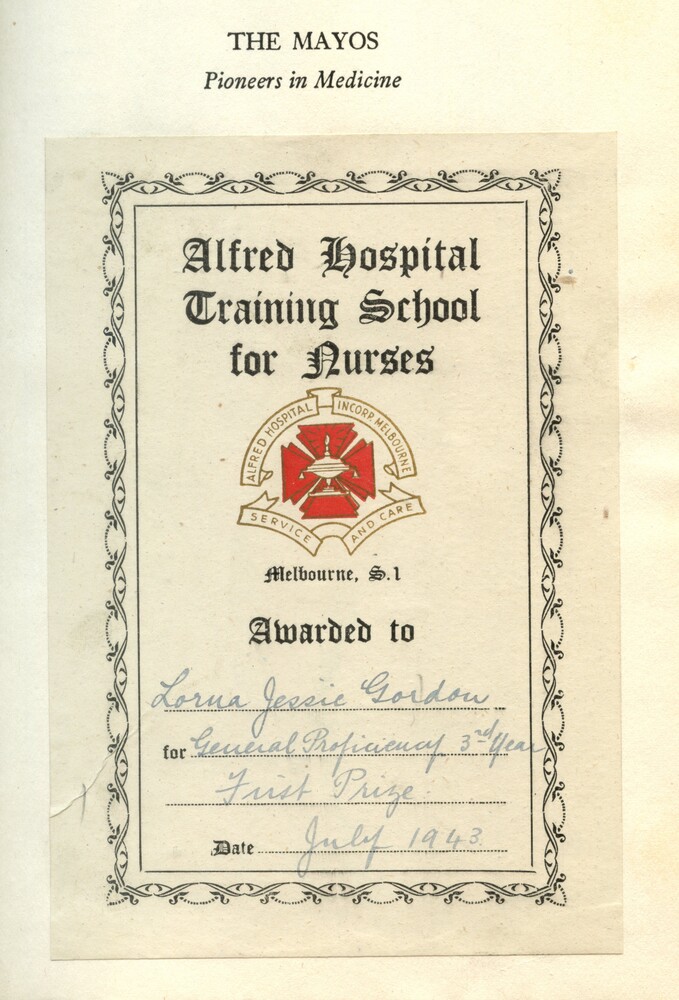 THE MAYOS
Pioneers in Medicine
Alfred Hospital
Training School
for Nurses
ALFRED HOSPITAL INCORP. MELBOURNE
SERVICE AND CARE
Melbourne, S.1
Awarded to
Lorna Jessie Gordon
for General Proficiency 3rd Year
First Prize
Date July 1943